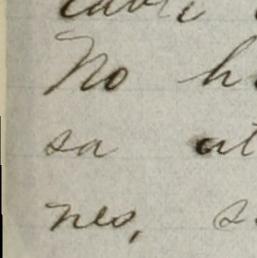 No h
sa at
nes, s